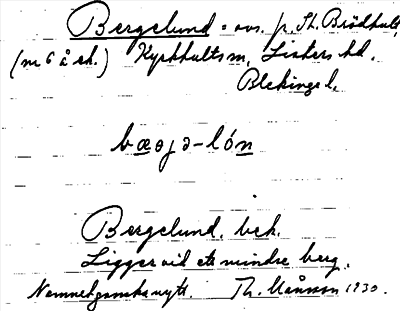 Bergelund: avs. p. St. Brödhult,
(m 6 å ek.) Kyrkhults sn, Listers hd,
Blekinge l.
bæƨjə-lón
Bergelund, beb.
Ligger vid ett mindre berg.
Namnet ganska nytt. Th. Månsson 1930.